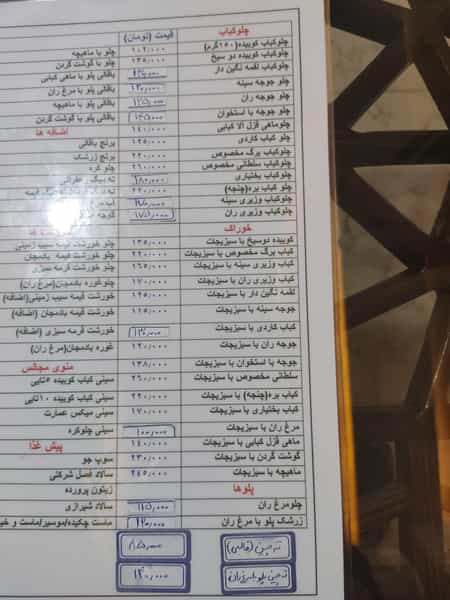 چلوکباب	قیمت (تومان)
چلوکباب کوبیده (۱۵۰گرم)	۱۰۲/۰۰۰	چلو با ماهیچه
چلوکباب کوبیده دو سیخ	۱۳۵/۰۰۰	چلو با گوشت گردن
چلوکباب لقمه نگین دار	باقالی پلو با ماهی کبابی
چلو جوجه سینه	باقالی پلو با مرغ ران
چلو جوجه ران	باقالی پلو با ماهیچه
چلو جوجه با استخوان	باقالی پلو با گوشت گردن
چلوماهی قزل آلا کبابی	۱۴۰/۰۰۰	اضافه ها
چلو کباب کاردی	۱۲۵/۰۰۰	برنج باقالی
چلوکباب برگ مخصوص	۲۲۰/۰۰۰	برنج زرشک
چلوکباب سلطانی مخصوص	۲۶۰/۰۰۰	چلو کره
چلوکباب بختیاری	۱۸۰/۰۰۰
چلو کباب بره(چنجه)	۲۲۰/۰۰۰
چلوکباب وزیری سینه
چلوکباب وزیری ران	گوجه
خوراک
کوبیده دوسیخ با سبزیجات	۱۳۵/۰۰۰	چلو خورشت قیمه سیب زمینی
کباب برگ مخصوص با سبزیجات	۲۲۰/۰۰۰	چلو خورشت قیمه بادمجان
کباب وزیری سینه با سبزیجات	۲۶۵/۰۰۰	چلو خورشت قرمه سبزی
کباب وزیری ران با سبزیجات	۱۷۰/۰۰۰	چلوخوره بادمجان(مرغ ران)
لقمه نگین دار با سبزیجات	۱۲۵/۰۰۰	خورشت قیمه سیب زمینی(اضافه)
جوجه سینه با سبزیجات	۱۲۵/۰۰۰	خورشت قیمه بادمجان (اضافه)
کباب کاردی با سبزیجات	۱۳۰/۰۰۰	خورشت قرمه سبزی (اضافه)
جوجه ران با سبزیجات	۱۲۰/۰۰۰	غوره بادمجان(مرغ ران)
جوجه با استخوان با سبزیجات	۱۳۸/۰۰۰	منوی مجالس
سلطانی مخصوص با سبزیجات	۲۶۰/۰۰۰	سینی کباب کوبیده ۵تایی
کباب بره(چنجه) با سبزیجات	۲۲۰/۰۰۰	سینی کباب کوبیده ۱۰تایی
کباب بختیاری با سبزیجات	۱۷۰/۰۰۰	سینی میکس عمارت
مرغ ران با سبزیجات	۱۰۰/۰۰۰	سینی چلوکره
ماهی قزل کبابی با سبزیجات	۱۴۰/۰۰۰	پیش غذا
گوشت گردن با سبزیجات	۲۳۰/۰۰۰	سوپ جو
ماهیچه با سبزیجات	۲۴۵/۰۰۰	سالاد فصل شرکتی
پلوها	زیتون پرورده
چلومرغ ران	۱۱۵/۰۰۰	سالاد شیرازی
زرشک پلو با مرغ ران	۱۲۰/۰۰۰	ماست چکیده/موسیر/ماست و خیار
ته چین (قالبی)	۸۵/۰۰۰
ته چین پلو با مرغ ران	۱۴۰/۰۰۰